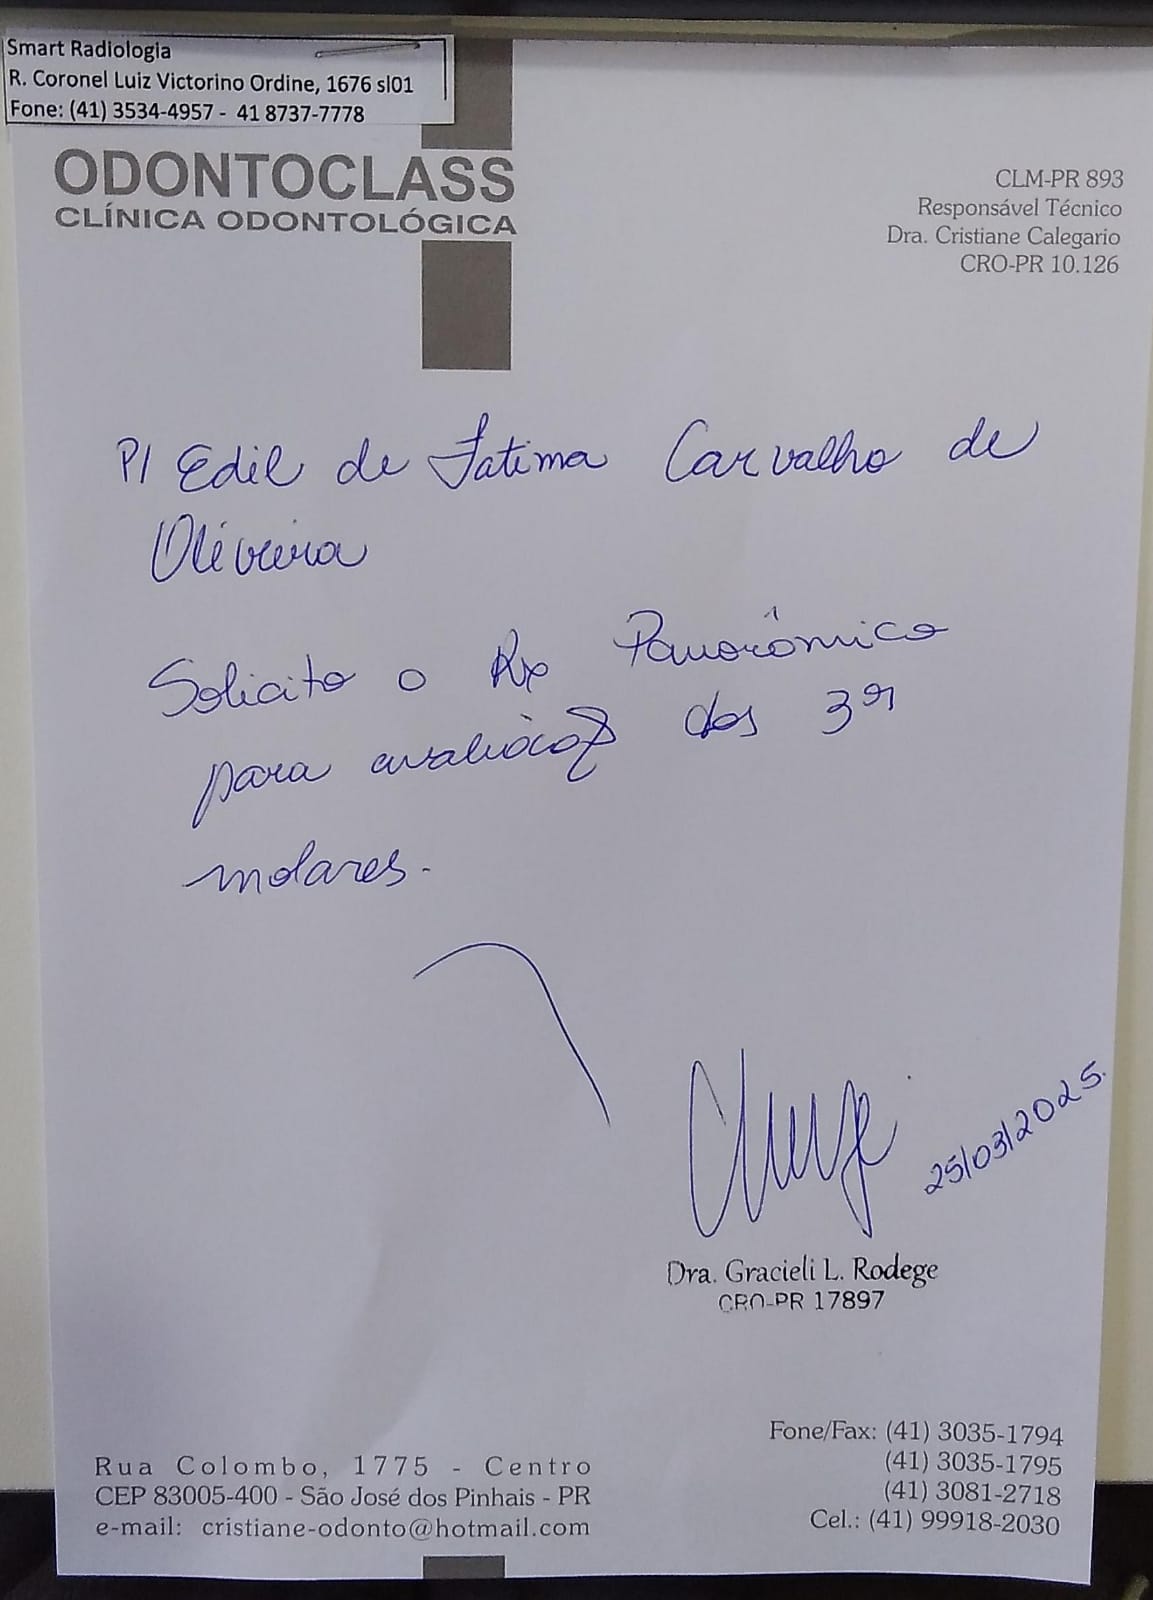 Smart Radiologia
R. Coronel Luiz Victorino Ordine, 1676 sl01
Fone: (41) 3534-4957 - 41 8737-7778
ODONTOCLASS
CLÍNICA ODONTOLÓGICA
CLM-PR 893
Responsável Técnico
Dra. Cristiane Calegario
CRO-PR 10.126
P/ Edil de Fatima Carvalho de
Oliveira
Solicito o Rx Panorâmico
para avaliação dos 3ºs
molares.
25/03/2025.
Dra. Gracieli L. Rodege
CRO-PR 17897
Rua Colombo, 1775 - Centro
CEP 83005-400 - São José dos Pinhais - PR
e-mail: cristiane-odonto@hotmail.com
Fone/Fax: (41) 3035-1794
(41) 3035-1795
(41) 3081-2718
Cel.: (41) 99918-2030